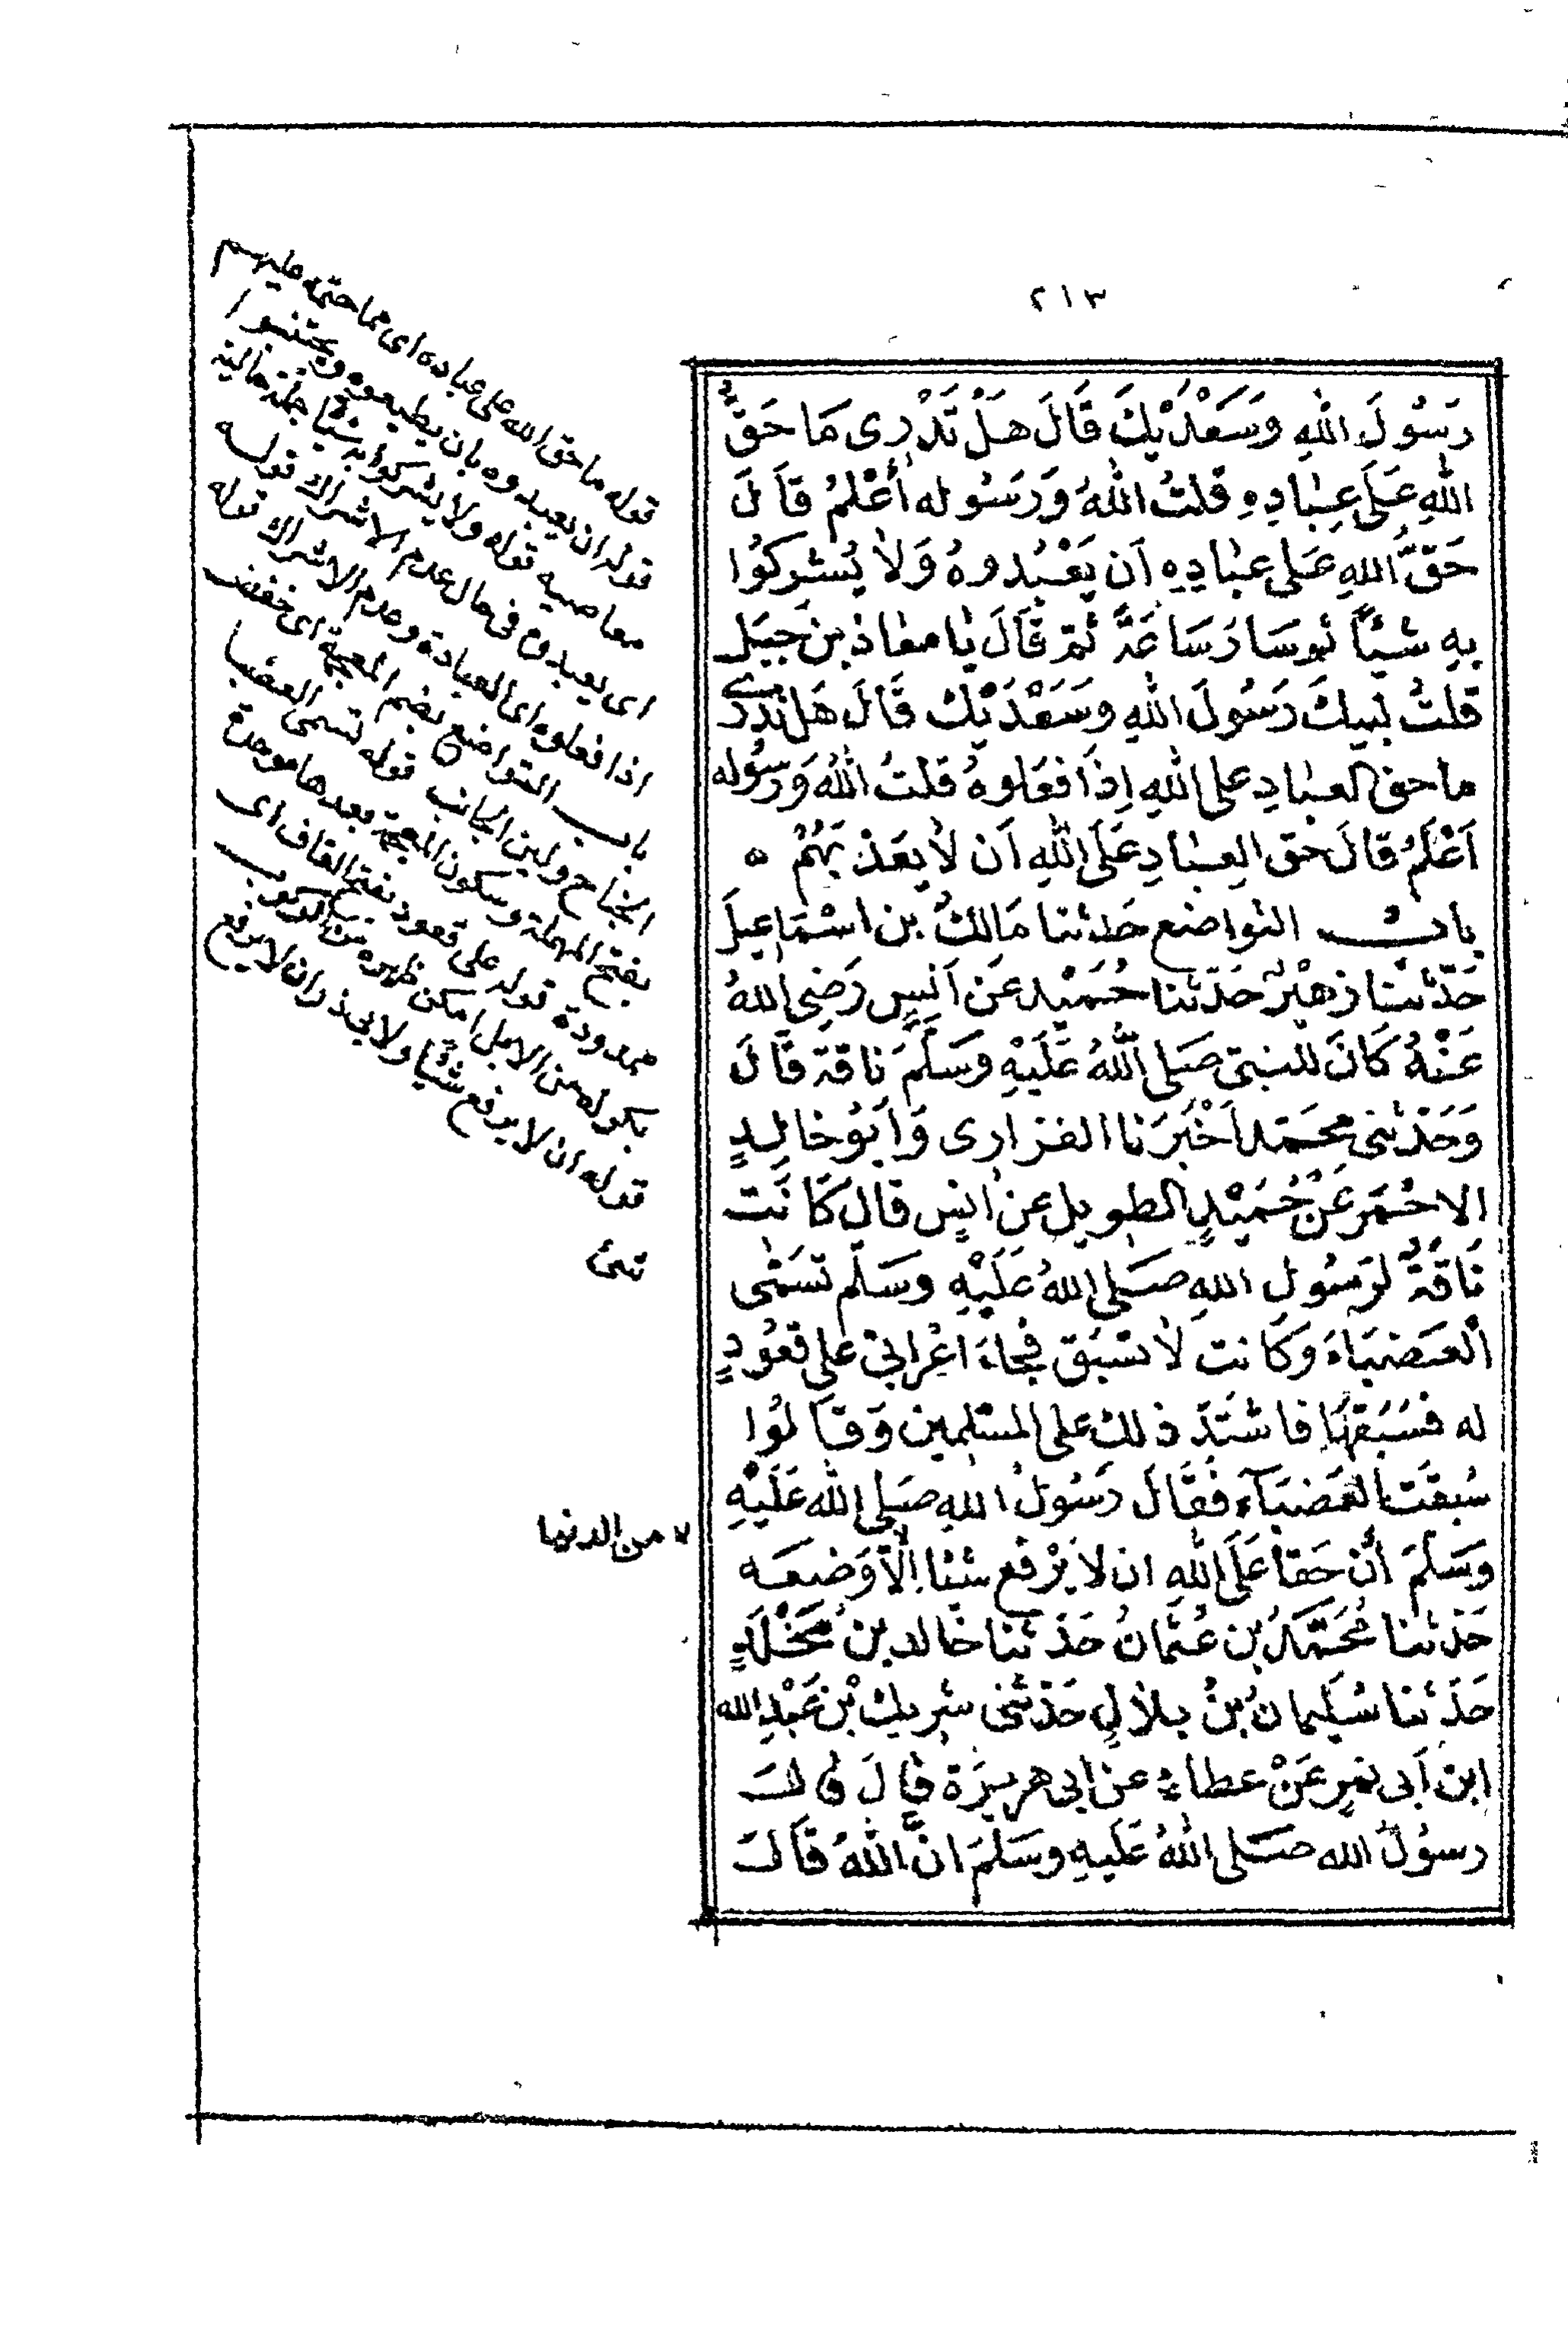 ٢١٣
رَسُولَ اللهِ وَسَعْدَيْكَ قَالَ هَلْ تَدْرِى مَا حَقُّ
اللهِ عَلَى عِبَادِهِ قلتُ اللهُ وَرَسُوله أَعْلمُ قَالَ
حَقُّ اللهِ عَلى عبادِهِ اَن يَعْبُدوهُ وَلَا يُشركُوا
بِهِ شيْئًا ثم سَارَ سَاعَةً ثمّ قَالَ يَا معاذ بن جبَل
قلتُ لبيكَ رَسُولَ اللهِ وَسَعْدَيْك قَالَ هَل تدرى
ما حق العبَادِ على اللهِ اِذَا فعَلوهُ قلتُ اللهُ وَرسُوله
اَعْلَمُ قالَ حق العِبَادِ عَلَى اللهِ اَن لَا يعَذبَهُمْ ه
بابُ التواضع حَدثنا مَالكُ بن اسْمَاعِيلَ
حَدّثنا زهَيْرٌ حَدّثنا حُمَيْد عَن اَنَسٍ رَضِى اللهُ
عَنْهُ كَانَ للنبىّ صَلى اللهُ عَلَيْهِ وَسَلّمَ ناقة قَالَ
وَحَدّثنى محَمّد اَخْبَرَنا الفزارى وَاَبُو خالِدٍ
الاحْمَر عَنْ حُمَيْدٍ الطويل عن انسٍ قالَ كَانَت
نَاقَةٌ لرَسُولِ اللهِ صَلى اللهُ عَلَيْهِ وَسَلّم تسَمّى
العَضبَاءَ وَكَانت لَا تسْبَق فجاءَ اعْرابىّ على قعُودٍ
له فسَبَقهَا فاشتَدّ ذلك على المسْلِمين وَقالوُا
سُبقت العَضبَاَء فَقَالَ رَسُولُ اللهِ صَلى الله عَلَيْهِ
وَسَلمَ اَنّ حَقا عَلَى اللهِ ان لَا يَرْفع شيْئا اِلّا وَضعَه
٧ من الدنيا
حَدثنا مُحَمّدُ بن عُثمانُ حَدثنا خالد بن مَخْلَدٍ
حَدثنا سُلَيمانُ بنُ بلَالٍ حَدّثنى شريك بْن عَبْدِ الله
ابن اَبى نمرٍ عَنْ عطاءٍ عن ابى هريرَة قالَ قالَ
رسوُلُ الله صَلى اللهُ عَليهِ وسَلمَ انّ اللهُ قَالَ
قوله ما حق الله على عباده اى مما حتمه عليهم
قوله ان يعبدوه بان يطيعوه ويجتنبوا
معاصيه قوله ولا يشركوا به شيئا جملة حالية
اى يعبدون فى حال عدم الاشراك قوله
اذا فعلوه اى العبادة وعدم الاشراك قوله
باب التواضع بضم المعجمة اى خفض
الجناح ولين الجانب قوله تسمى العضبا
بفتح المهملة وسكون المعجمة بعدها موحدة
ممدودة قوله على قعود بفتح القاف اى
بكر له من الابل امكن ظهره من الركوب
قوله ان لا يرفع شيئا ولابى ذر ان لا يرفع
شئ